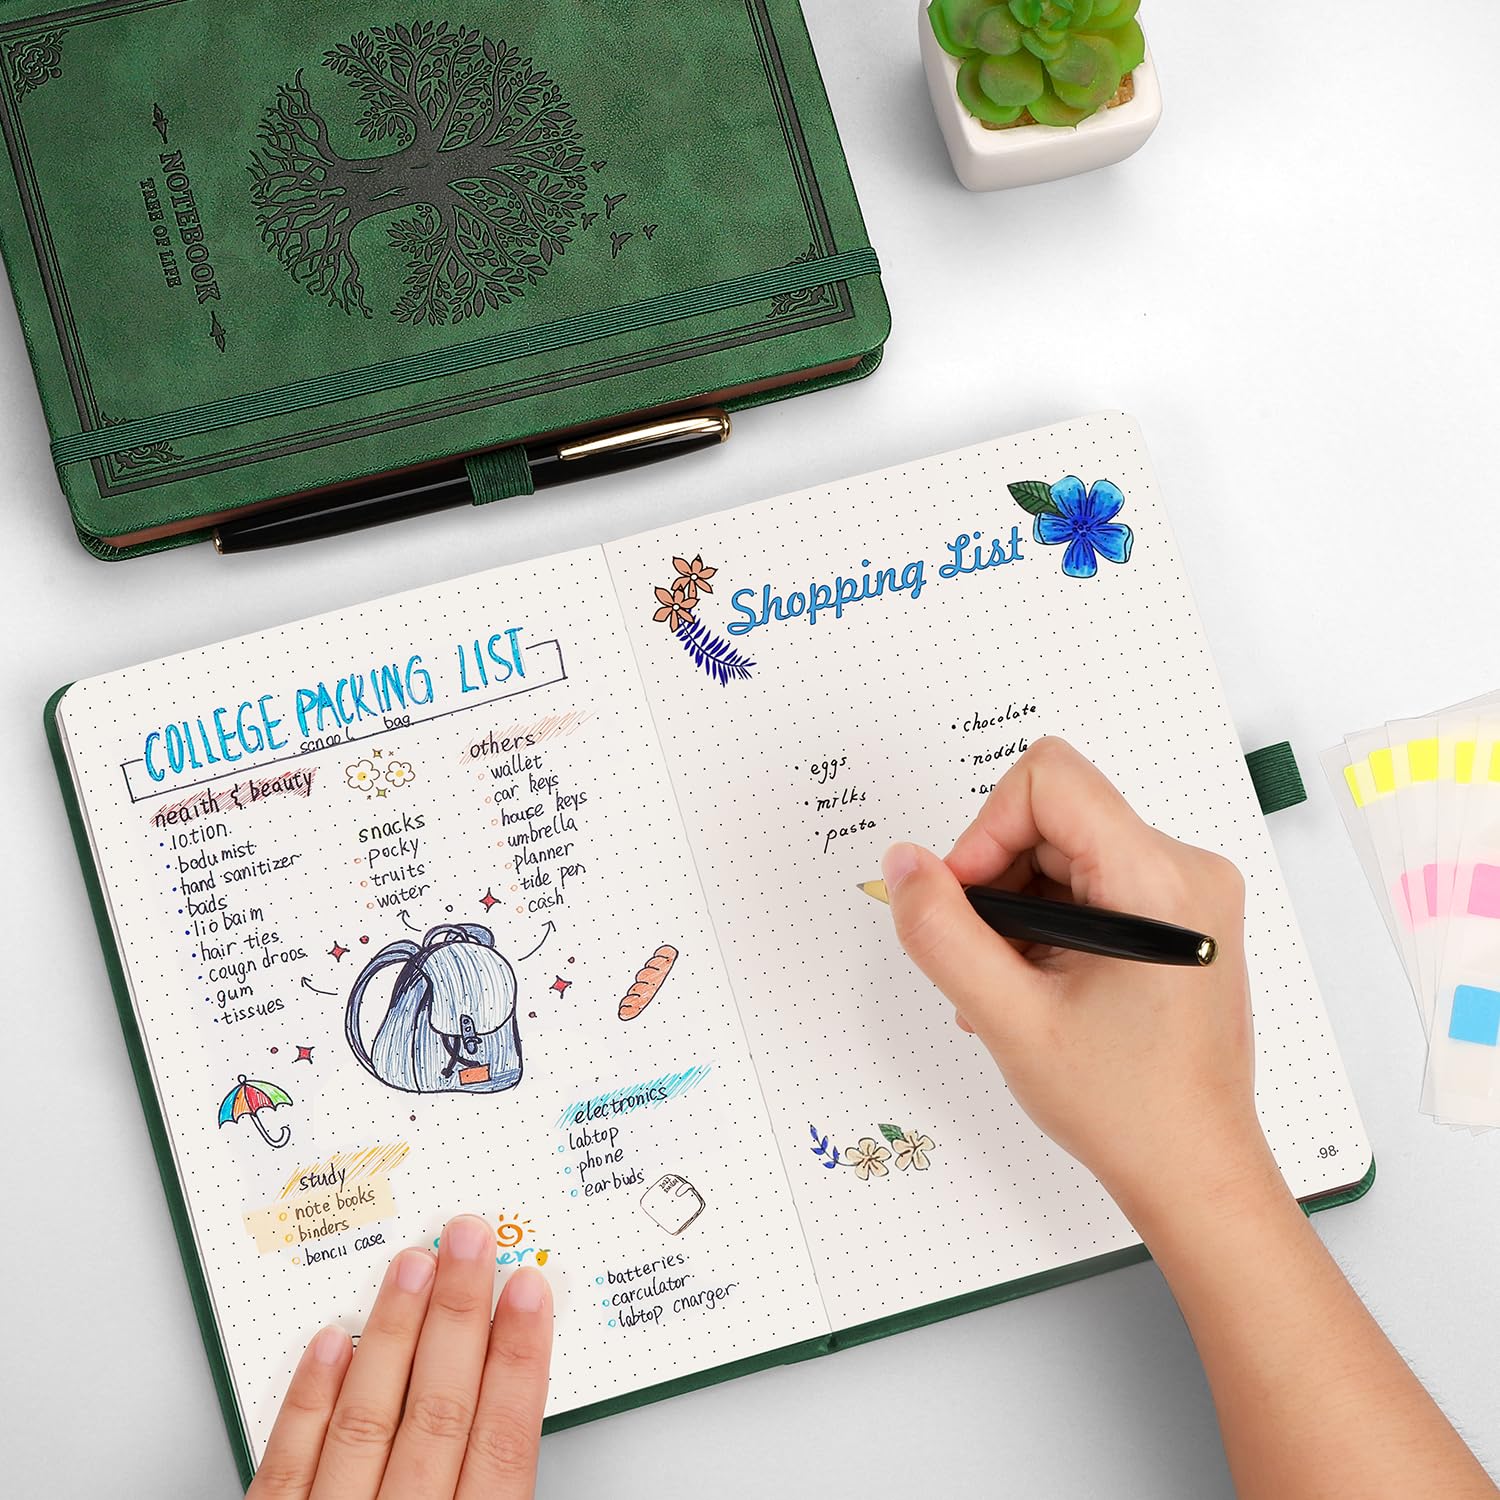 NOTEBOOK
TREE OF LIFE
COLLEGE PACKING LIST
scnool bag
neaith & beauty
lotion
bodu mist
hand sanitizer
bads
lio baim
hair ties
cougn droos
gum
tissues
snacks
pocky
truits
water
others
wallet
car keys
house keys
umbrella
planner
tide pen
cash
study
note books
binders
bencil case
electronics
labtop
phone
earbuds
batteries
carculator
labtop cnarger
Shopping List
eggs
milks
pasta
chocolate
noddle
98